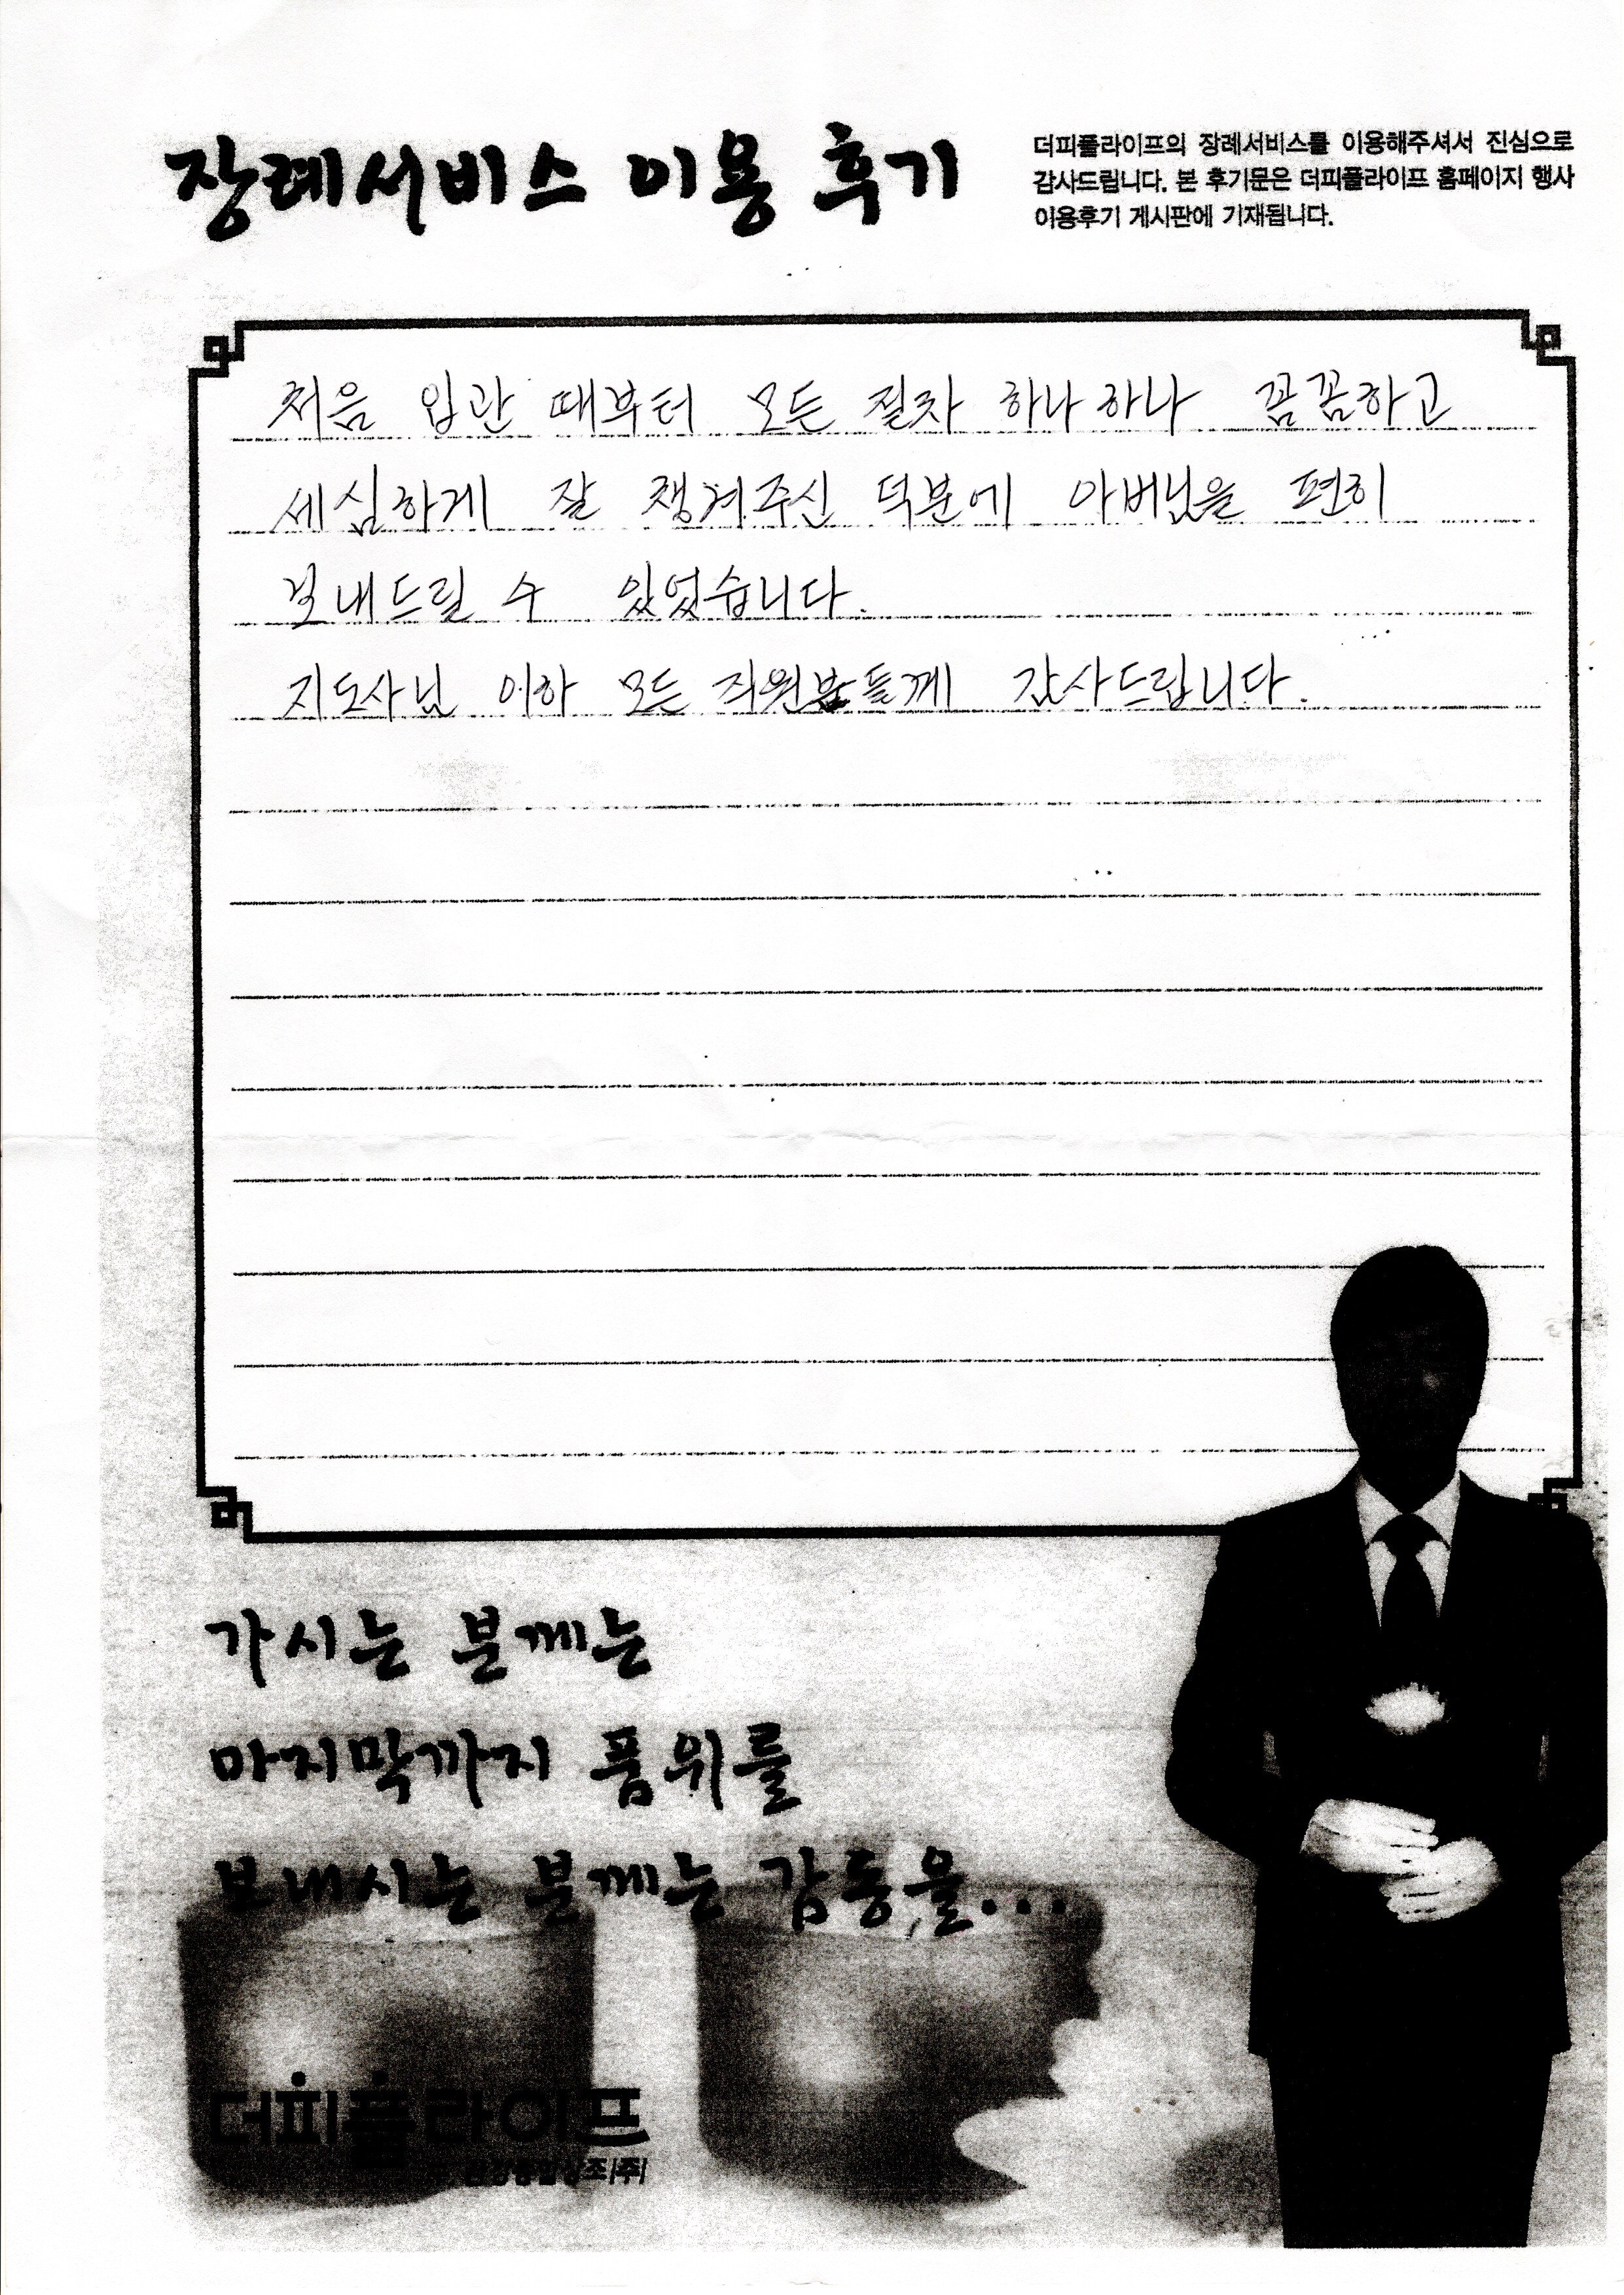 장례서비스 이용 후기
더피플라이프의 장례서비스를 이용해주셔서 진심으로
감사드립니다. 본 후기문은 더피플라이프 홈페이지 행사
이용후기 게시판에 기재됩니다.
처음 입관 때부터 모든 절차 하나하나 꼼꼼하고
세심하게 잘 챙겨주신 덕분에 아버님을 편히
보내드릴 수 있었습니다.
지도사님 이하 모든 직원분들께 감사드립니다.
가시는 분께는
마지막까지 품위를
보내시는 분께는 감동을...
더피플라이프